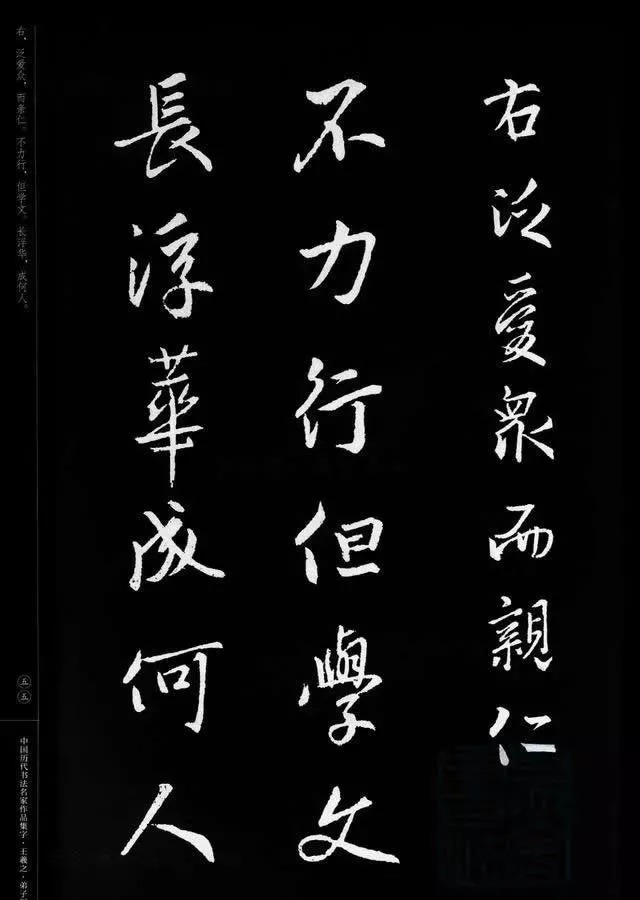 右泛愛衆而親仁
不力行但學文
長浮華成何人
右，泛爱众，而亲仁。不力行，但学文。长浮华，成何人。
五五
中国历代书法名家作品集字·王羲之·弟子